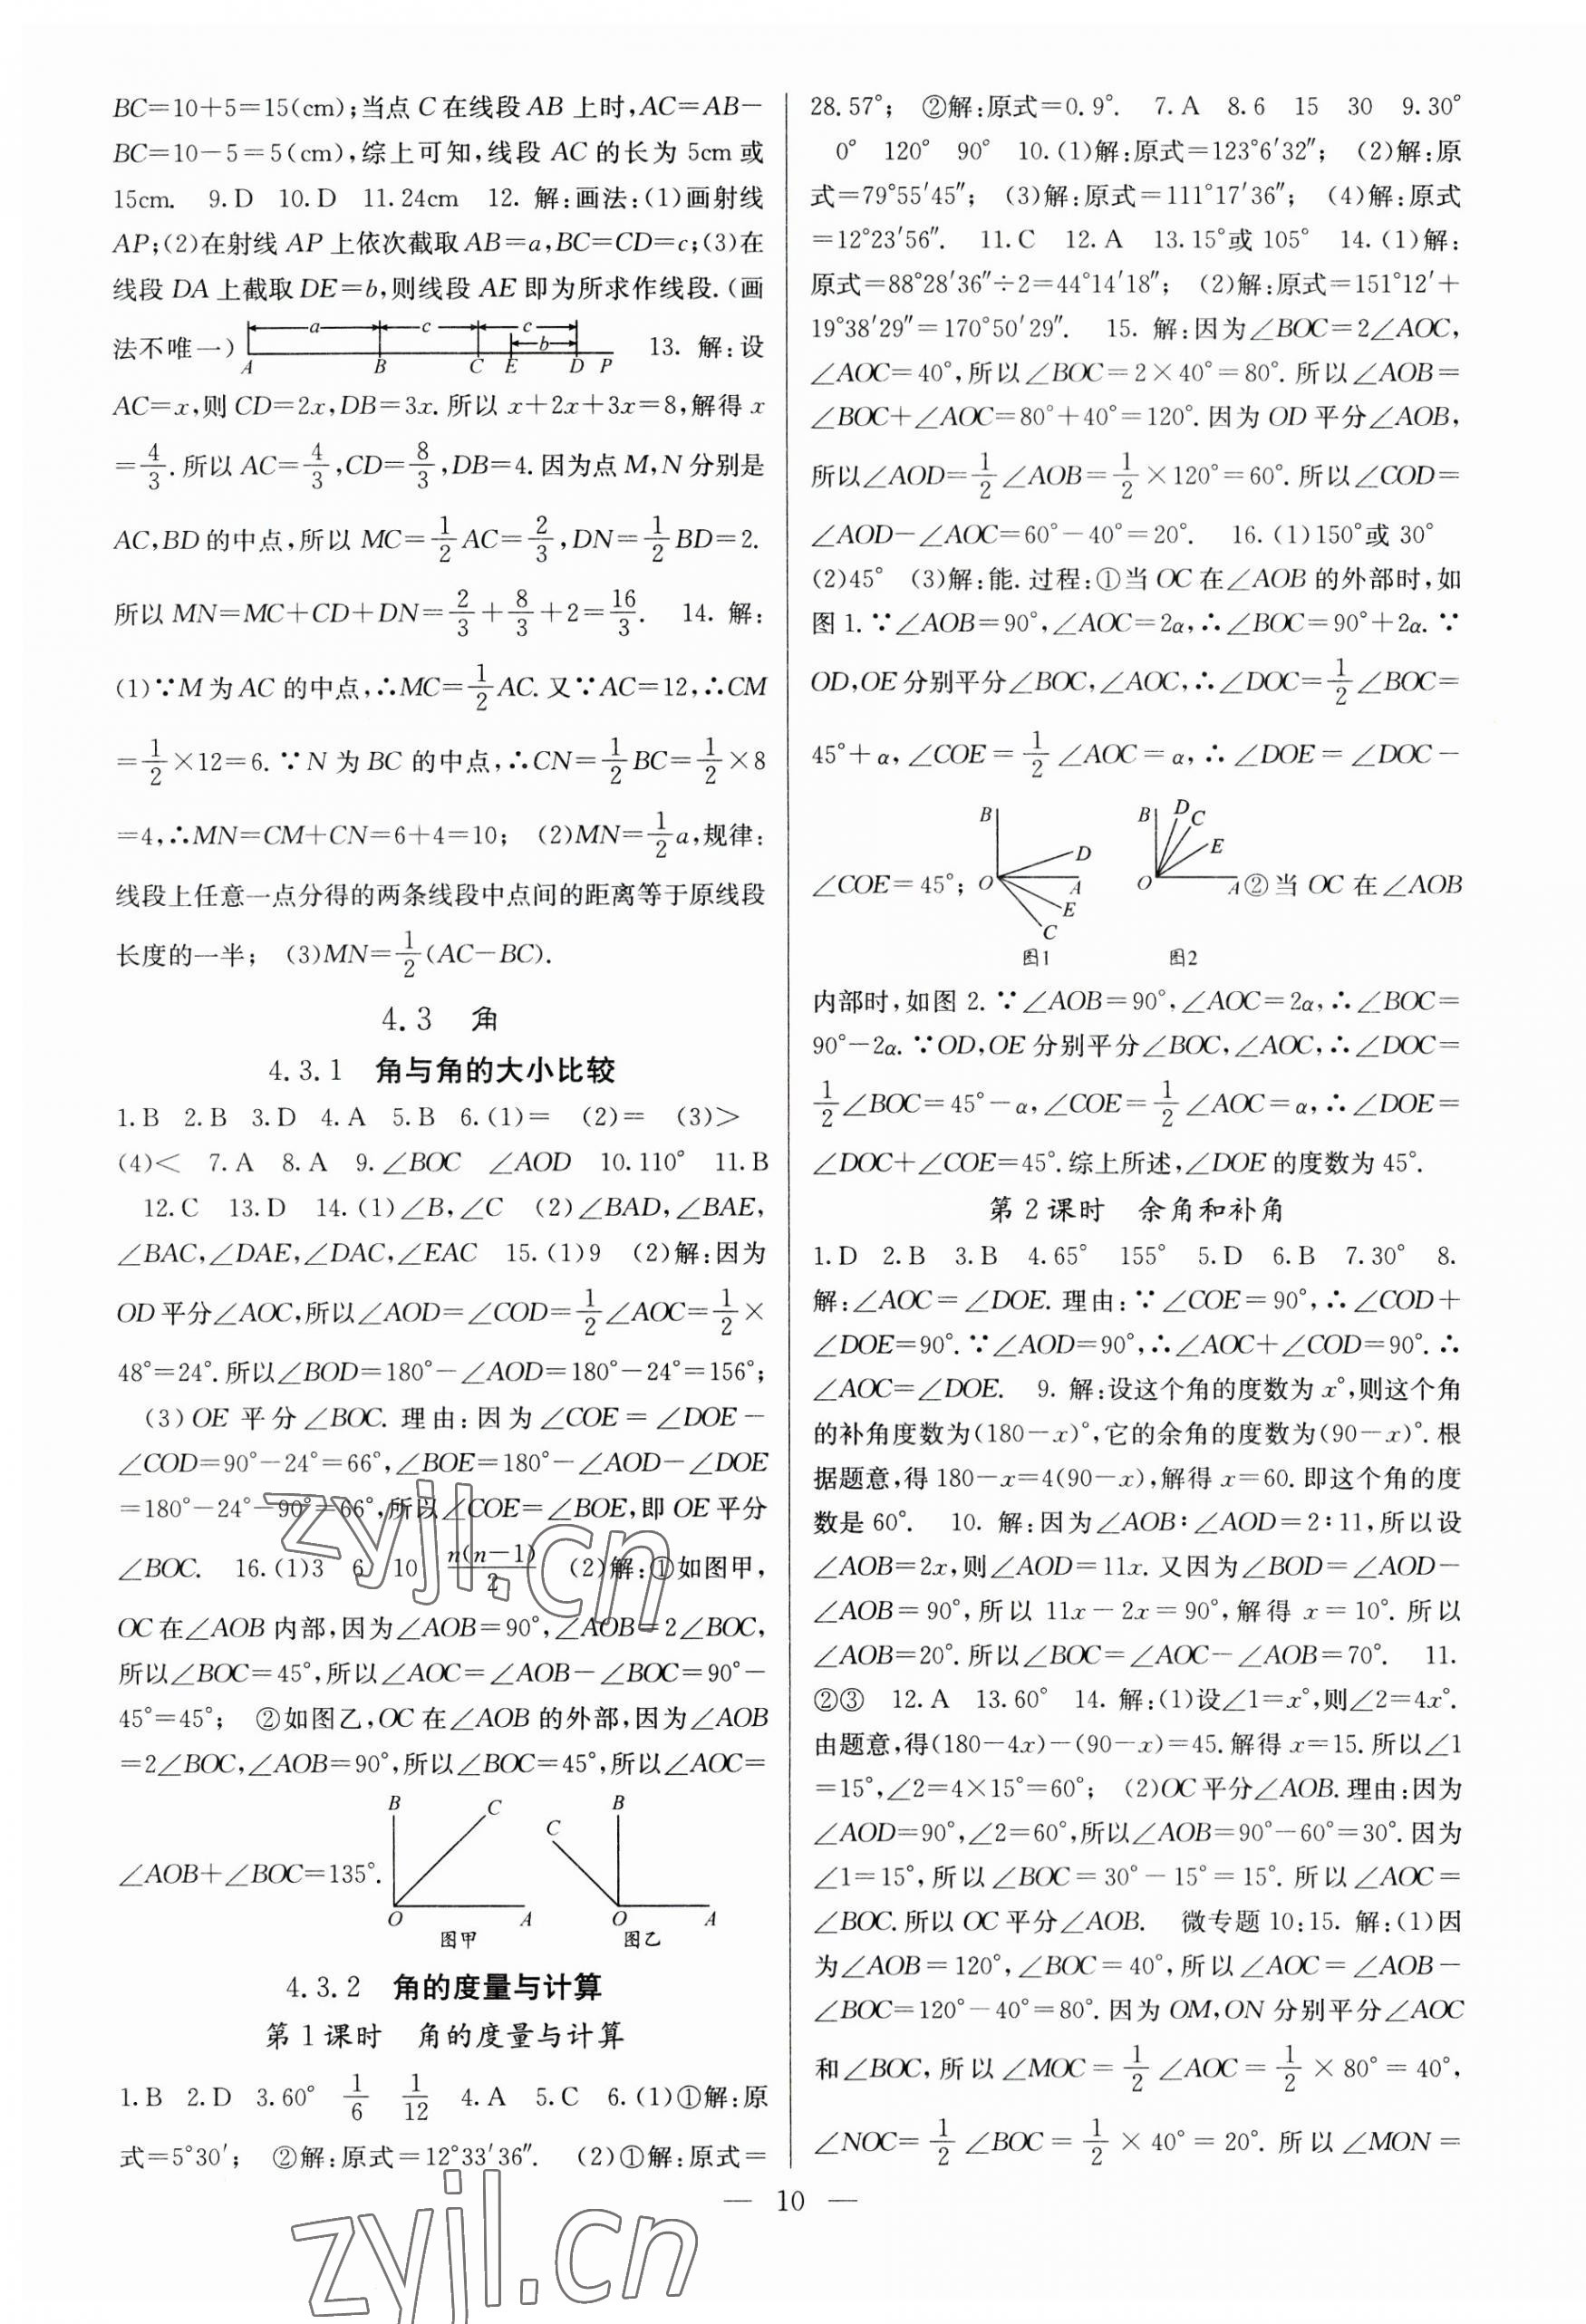 BC=10+5=15(cm);当点 C 在线段 AB 上时,AC=AB-
BC=10-5=5(cm),综上可知,线段 AC 的长为 5cm 或
15cm. 9.D 10.D 11.24cm 12. 解:画法:(1)画射线
AP;(2)在射线 AP 上依次截取 AB=a,BC=CD=c;(3)在
线段 DA 上截取 DE=b,则线段 AE 即为所求作线段.(画
法不唯一) a c c b A B C E D P 13. 解:设
AC=x,则 CD=2x,DB=3x.所以 x+2x+3x=8,解得 x
=4/3.所以 AC=4/3,CD=8/3,DB=4.因为点 M,N 分别是
AC,BD 的中点,所以 MC=1/2AC=2/3,DN=1/2BD=2.
所以 MN=MC+CD+DN=2/3+8/3+2=16/3. 14. 解:
(1)∵M 为 AC 的中点,∴MC=1/2AC.又∵AC=12,∴CM
=1/2×12=6.∵N 为 BC 的中点,∴CN=1/2BC=1/2×8
=4,∴MN=CM+CN=6+4=10; (2)MN=1/2a,规律:
线段上任意一点分得的两条线段中点间的距离等于原线段
长度的一半; (3)MN=1/2(AC-BC).
4.3 角
4.3.1 角与角的大小比较
1.B 2.B 3.D 4.A 5.B 6.(1)= (2)= (3)>
(4)< 7.A 8.A 9.∠BOC ∠AOD 10.110° 11.B
12.C 13.D 14.(1)∠B,∠C (2)∠BAD,∠BAE,
∠BAC,∠DAE,∠DAC,∠EAC 15.(1)9 (2)解:因为
OD 平分∠AOC,所以∠AOD=∠COD=1/2∠AOC=1/2×
48°=24°.所以∠BOD=180°-∠AOD=180°-24°=156°;
(3)OE 平分∠BOC.理由:因为∠COE=∠DOE-
∠COD=90°-24°=66°,∠BOE=180°-∠AOD-∠DOE
=180°-24°-90°=66°,所以∠COE=∠BOE,即 OE 平分
∠BOC. 16.(1)3 6 10 n(n-1)/2 (2)解:①如图甲,
OC 在∠AOB 内部,因为∠AOB=90°,∠AOB=2∠BOC,
所以∠BOC=45°,所以∠AOC=∠AOB-∠BOC=90°-
45°=45°; ②如图乙,OC 在∠AOB 的外部,因为∠AOB
=2∠BOC,∠AOB=90°,所以∠BOC=45°,所以∠AOC=
∠AOB+∠BOC=135°. B C O A 图甲 B C O A 图乙
4.3.2 角的度量与计算
第 1 课时 角的度量与计算
1.B 2.D 3.60° 1/6 1/12 4.A 5.C 6.(1)①解:原
式=5°30′; ②解:原式=12°33′36″. (2)①解:原式=
28.57°; ②解:原式=0.9°. 7.A 8.6 15 30 9.30°
0° 120° 90° 10.(1)解:原式=123°6′32″; (2)解:原
式=79°55′45″; (3)解:原式=111°17′36″; (4)解:原式
=12°23′56″. 11.C 12.A 13.15°或 105° 14.(1)解:
原式=88°28′36″÷2=44°14′18″; (2)解:原式=151°12′+
19°38′29″=170°50′29″. 15. 解:因为∠BOC=2∠AOC,
∠AOC=40°,所以∠BOC=2×40°=80°.所以∠AOB=
∠BOC+∠AOC=80°+40°=120°.因为 OD 平分∠AOB,
所以∠AOD=1/2∠AOB=1/2×120°=60°.所以∠COD=
∠AOD-∠AOC=60°-40°=20°. 16.(1)150°或 30°
(2)45° (3)解:能.过程:①当 OC 在∠AOB 的外部时,如
图 1.∵∠AOB=90°,∠AOC=2α,∴∠BOC=90°+2α.∵
OD,OE 分别平分∠BOC,∠AOC,∴∠DOC=1/2∠BOC=
45°+α,∠COE=1/2∠AOC=α,∴∠DOE=∠DOC-
∠COE=45°; B D O A E C 图1 B D C E O A 图2 ②当 OC 在∠AOB
内部时,如图 2.∵∠AOB=90°,∠AOC=2α,∴∠BOC=
90°-2α.∵OD,OE 分别平分∠BOC,∠AOC,∴∠DOC=
1/2∠BOC=45°-α,∠COE=1/2∠AOC=α,∴∠DOE=
∠DOC+∠COE=45°.综上所述,∠DOE 的度数为 45°.
第 2 课时 余角和补角
1.D 2.B 3.B 4.65° 155° 5.D 6.B 7.30° 8.
解:∠AOC=∠DOE.理由:∵∠COE=90°,∴∠COD+
∠DOE=90°.∵∠AOD=90°,∴∠AOC+∠COD=90°.∴
∠AOC=∠DOE. 9. 解:设这个角的度数为 x°,则这个角
的补角度数为(180-x)°,它的余角的度数为(90-x)°.根
据题意,得 180-x=4(90-x),解得 x=60.即这个角的度
数是 60°. 10. 解:因为∠AOB∶∠AOD=2∶11,所以设
∠AOB=2x,则∠AOD=11x.又因为∠BOD=∠AOD-
∠AOB=90°,所以 11x-2x=90°,解得 x=10°.所以
∠AOB=20°.所以∠BOC=∠AOC-∠AOB=70°. 11.
②③ 12.A 13.60° 14. 解:(1)设∠1=x°,则∠2=4x°.
由题意,得(180-4x)-(90-x)=45.解得 x=15.所以∠1
=15°,∠2=4×15°=60°; (2)OC 平分∠AOB.理由:因为
∠AOD=90°,∠2=60°,所以∠AOB=90°-60°=30°.因为
∠1=15°,所以∠BOC=30°-15°=15°.所以∠AOC=
∠BOC.所以 OC 平分∠AOB. 微专题 10:15. 解:(1)因
为∠AOB=120°,∠BOC=40°,所以∠AOC=∠AOB-
∠BOC=120°-40°=80°.因为 OM,ON 分别平分∠AOC
和∠BOC,所以∠MOC=1/2∠AOC=1/2×80°=40°,
∠NOC=1/2∠BOC=1/2×40°=20°.所以∠MON=
— 10 —
zyjl.cn
zyjl.cn